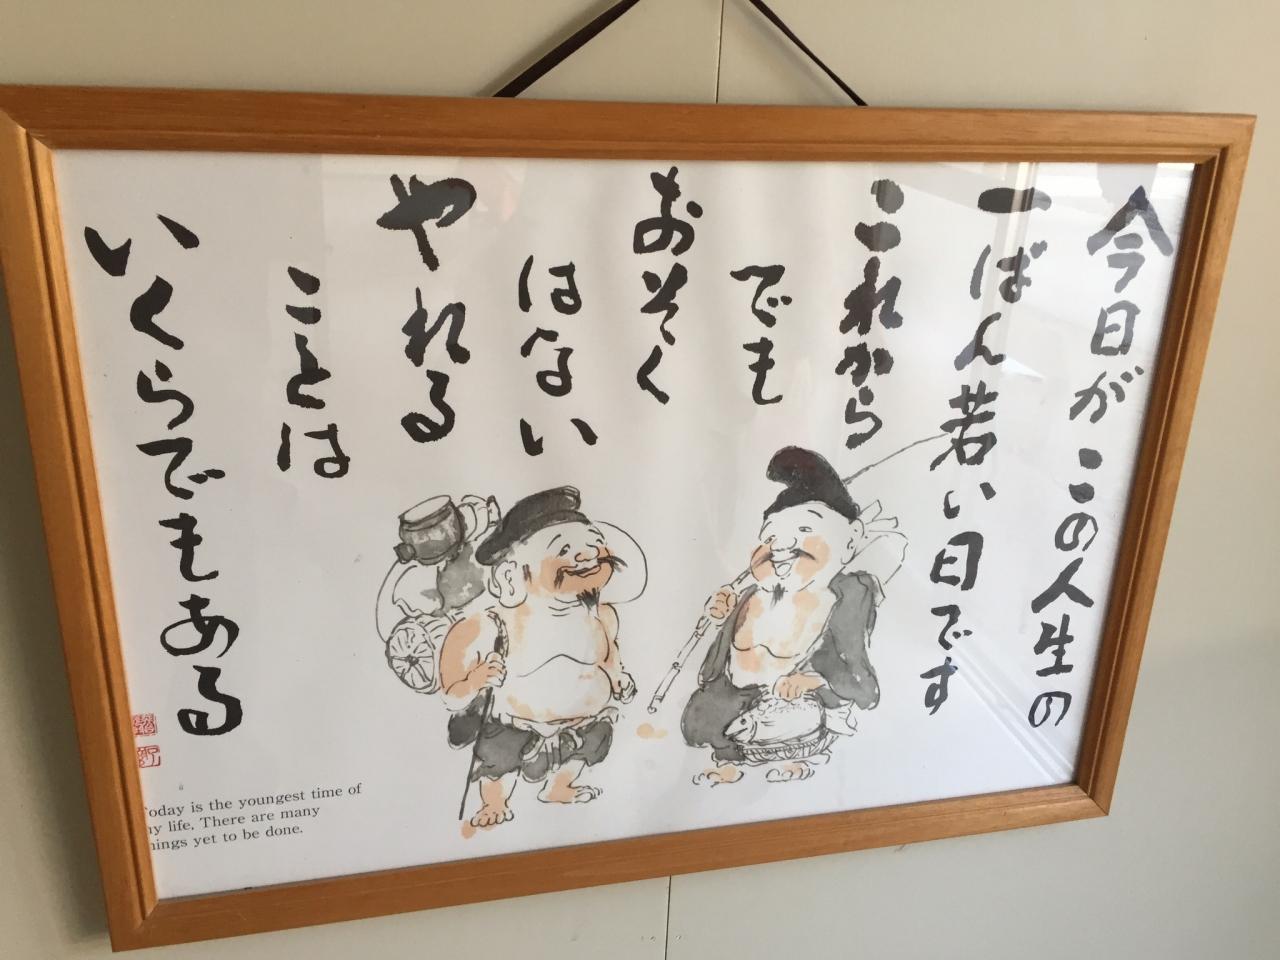 今日がこの人生の
一ばん若い日です
これから
でも
おそく
はない
やれる
ことは
いくらでもある
oday is the youngest time of
y life. There are many
ings yet to be done.